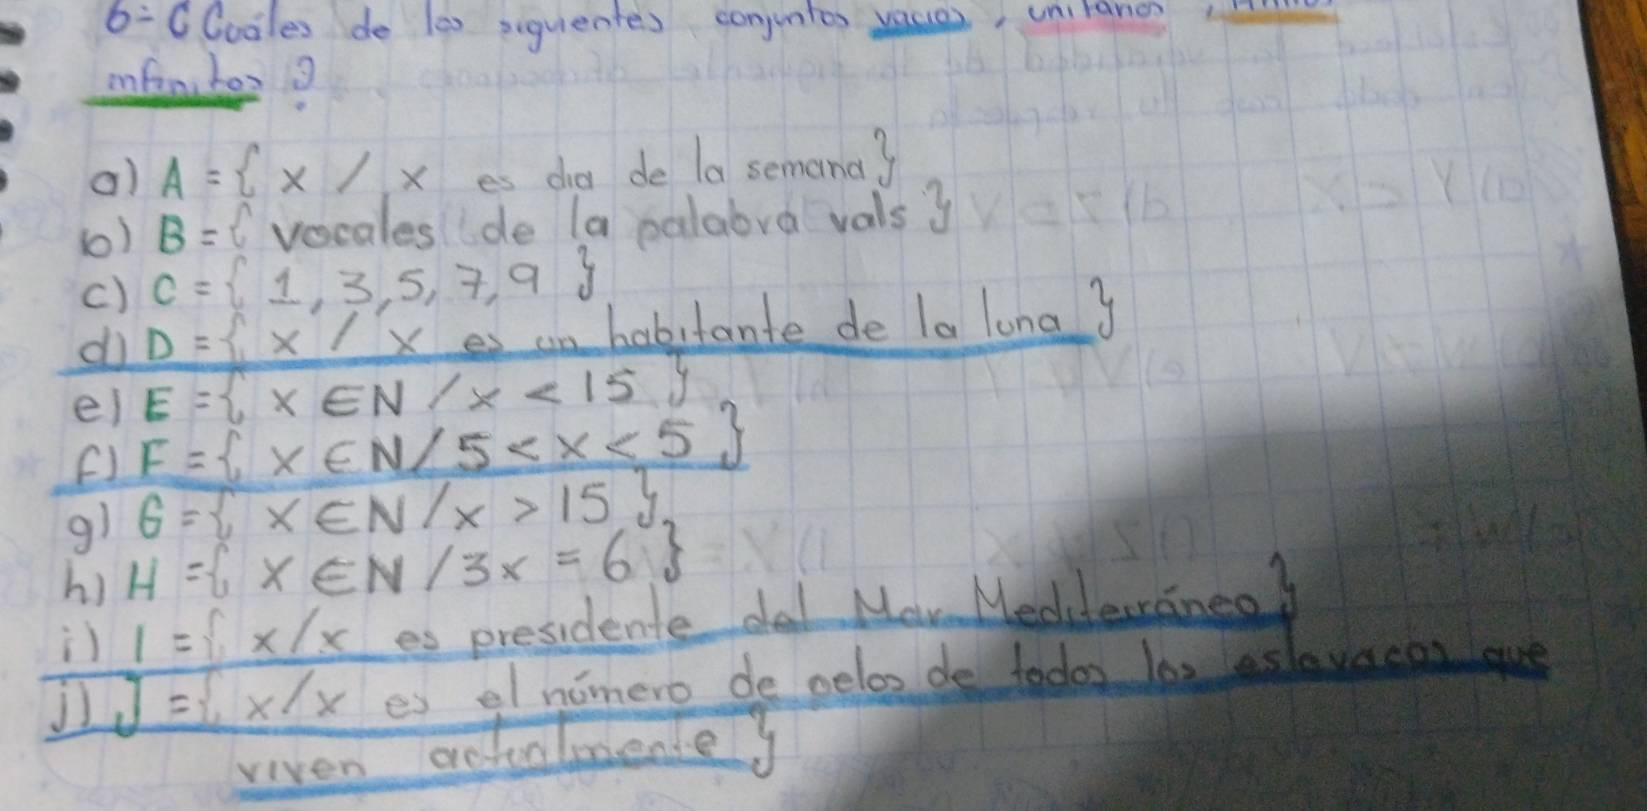 6- ¿Cuáles de los siguientes conjuntos vacios, unitarios,
infinitos?
a) A = { x / x es dia de la semana}
b) B = { vocales de la palabra vals }
c) C = { 1, 3, 5, 7, 9 }
d) D = { x / x es un habitante de la luna }
e) E = { x ∈ N / x < 15 }
f) F = { x ∈ N / 5 < x < 5 }
g) G = { x ∈ N / x > 15 }
h) H = { x ∈ N / 3x = 6 }
i) I = { x / x es presidente del Mar Mediterráneo }
j) J = { x / x es el número de pelos de todos los eslovacos que
viven actualmente }